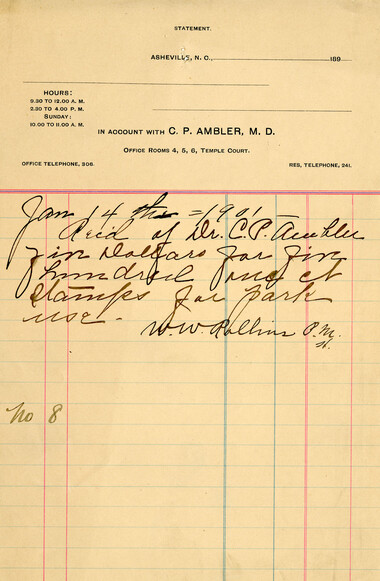 STATEMENT.
ASHEVILLE, N. C., 189
HOURS:
9.30 TO 12.00 A. M.
2.30 TO 4.00 P. M.
SUNDAY:
10.00 TO 11.00 A. M.
IN ACCOUNT WITH C. P. AMBLER, M. D.
OFFICE ROOMS 4, 5, 6, TEMPLE COURT.
OFFICE TELEPHONE, 206.
RES, TELEPHONE, 241.
Jan 14th = 1901
Recd of Dr. C. P. Ambler
Fiv Dollars for fiv
hundred one ct
stamps for park
use -
W. W. Rollins P. M.
No 8